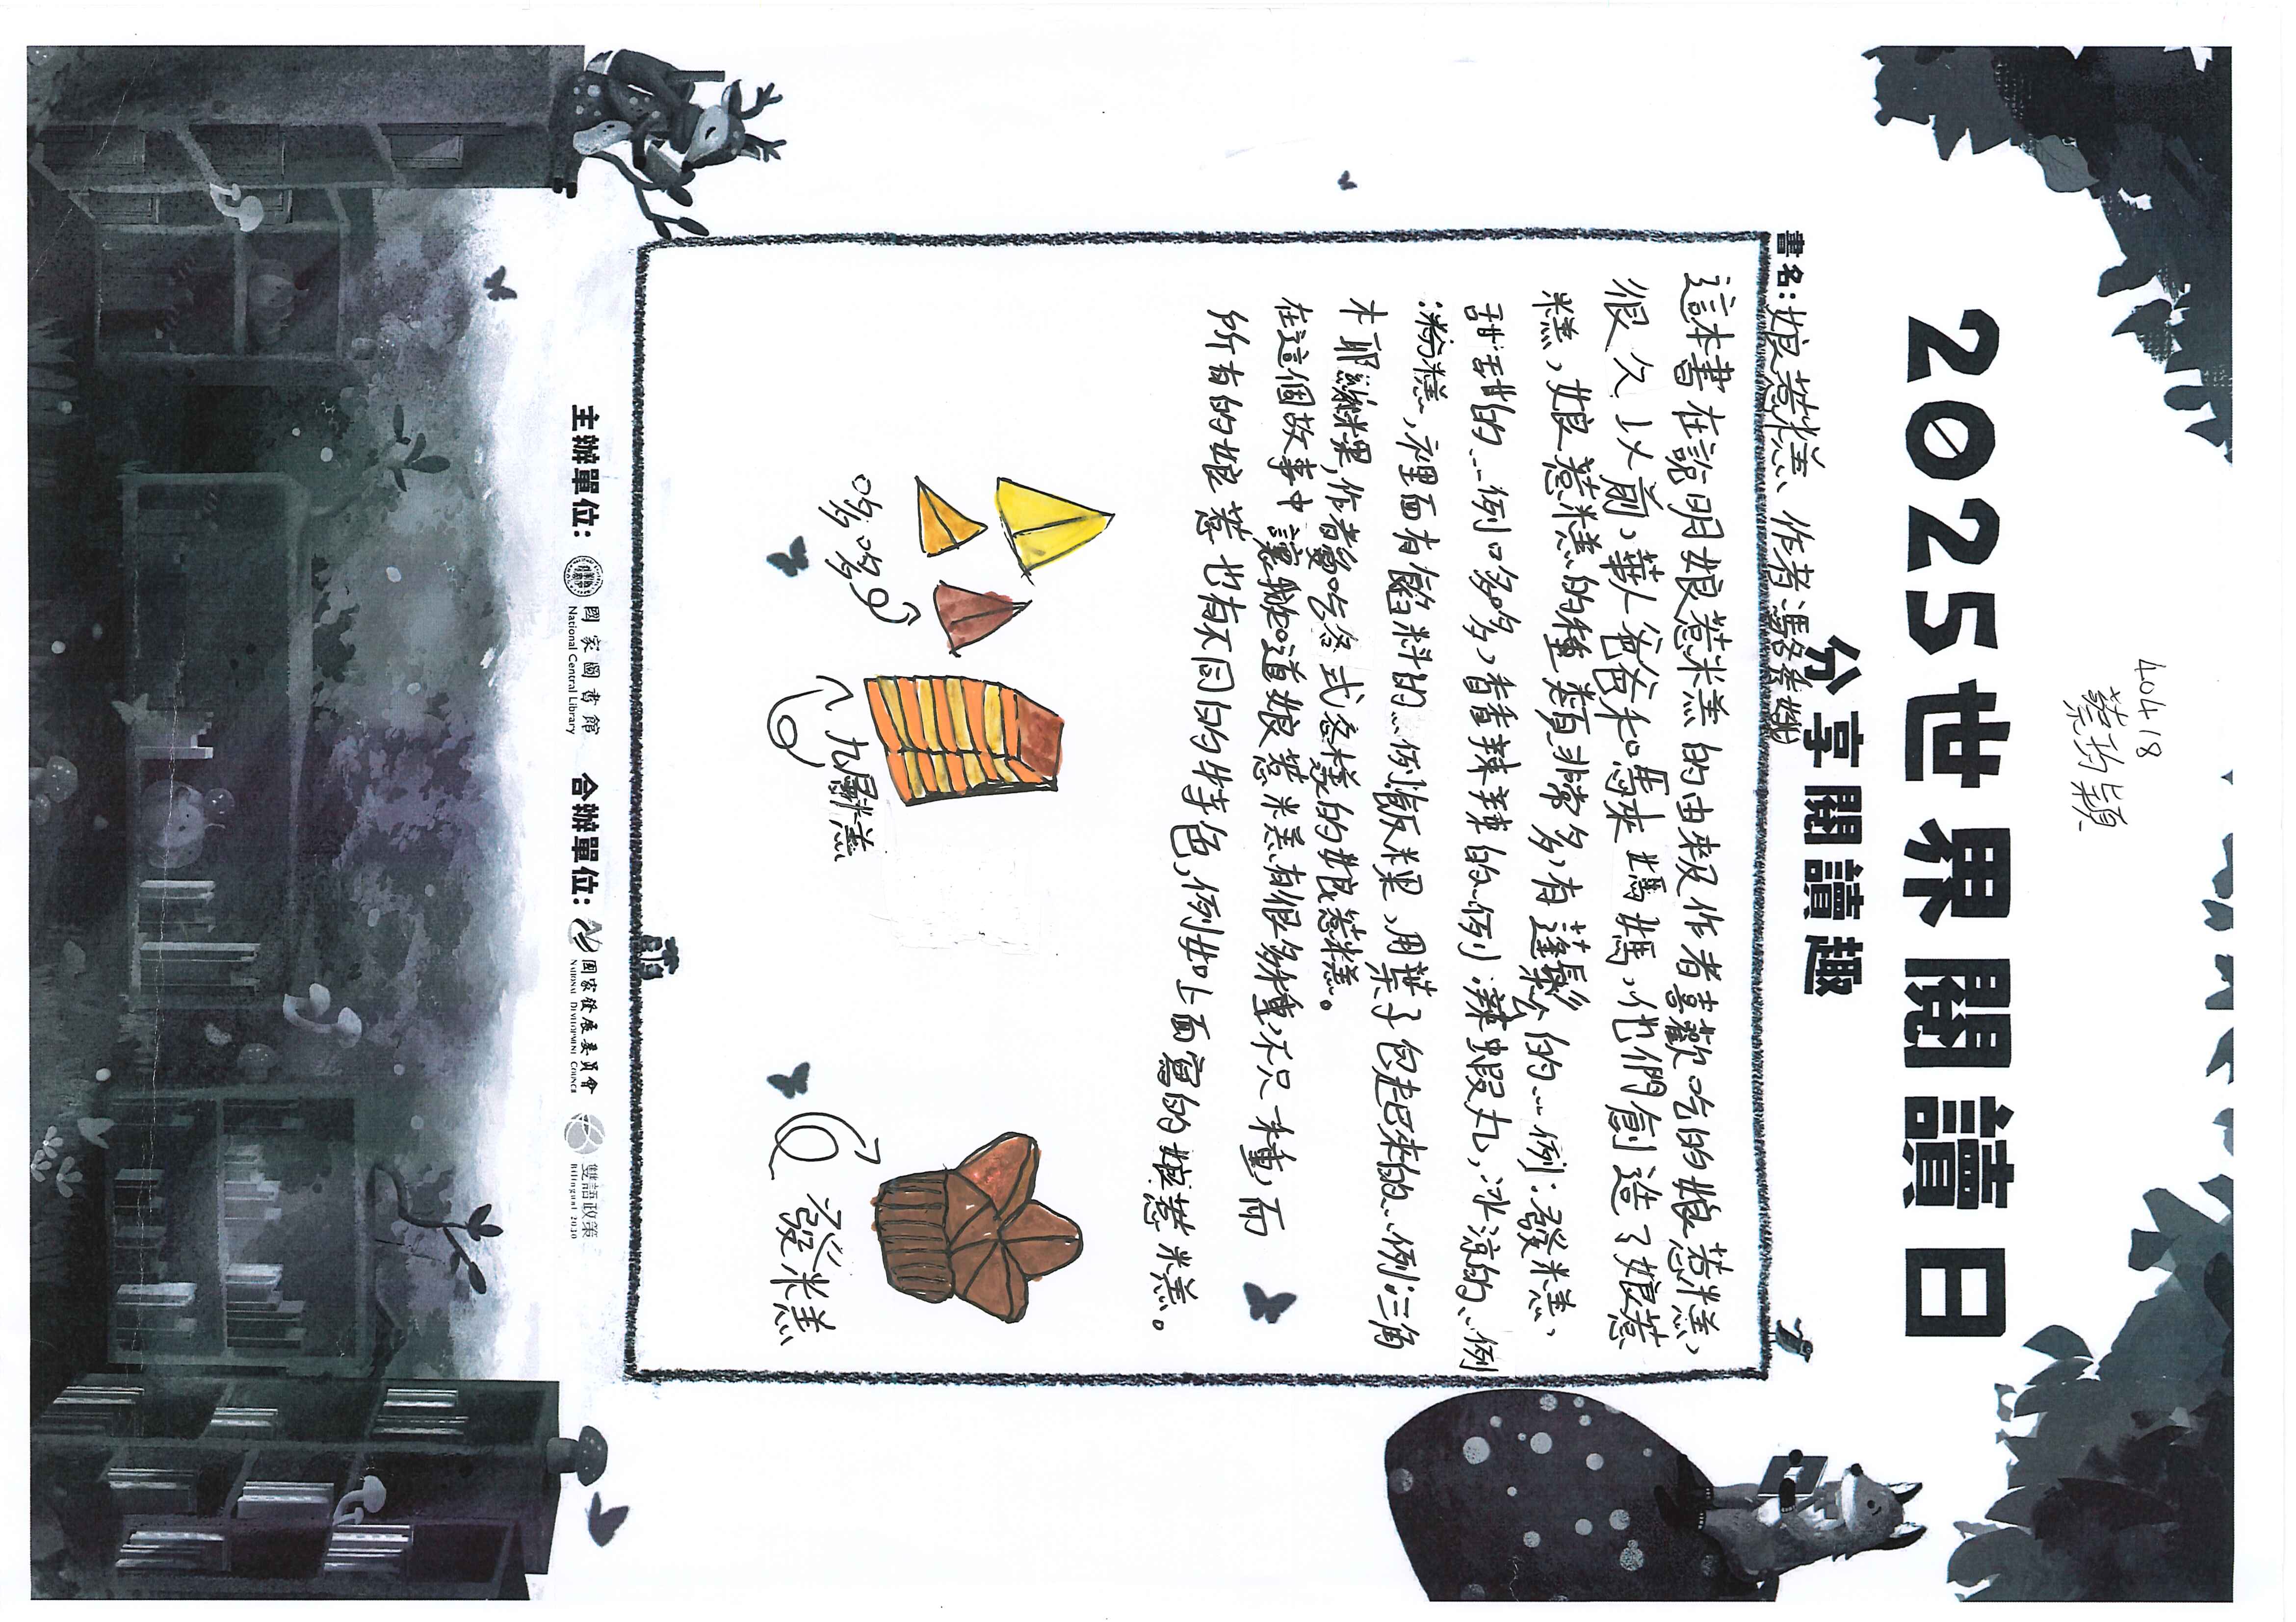 40418
蔡均穎
2025世界閱讀日
分享閱讀趣
書名:娘惹糕、作者馮
這本書在說明娘惹糕的由來及作者喜歡吃的娘惹糕,
很久以前,華人爸爸和馬來媽媽,他們創造了娘惹
糕,娘惹糕的種類非常多,有蓬鬆的…例:發糕,
甜甜的…例哆哆,香香辣辣的…例:辣蝦丸,冰涼的…例
:粉糕,裡面有餡料的…例飯粿,用葉子包起來的…例:三角
木耶絲粿,作者愛吃各式各樣的娘惹糕。
在這個故事中讓我知道娘惹糕有很多種,不只一種,而
所有的娘惹也有不同的特色,例如上面寫的娘惹糕。
哆哆
九層糕
發糕
主辦單位:
國家圖書館
National Central Library
合辦單位:
國家發展委員會
NATIONAL DEVELOPMENT COUNCIL
雙語政策
Bilingual 2030